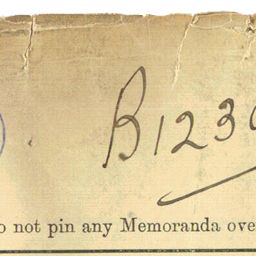 B1230
o not pin any Memoranda ove